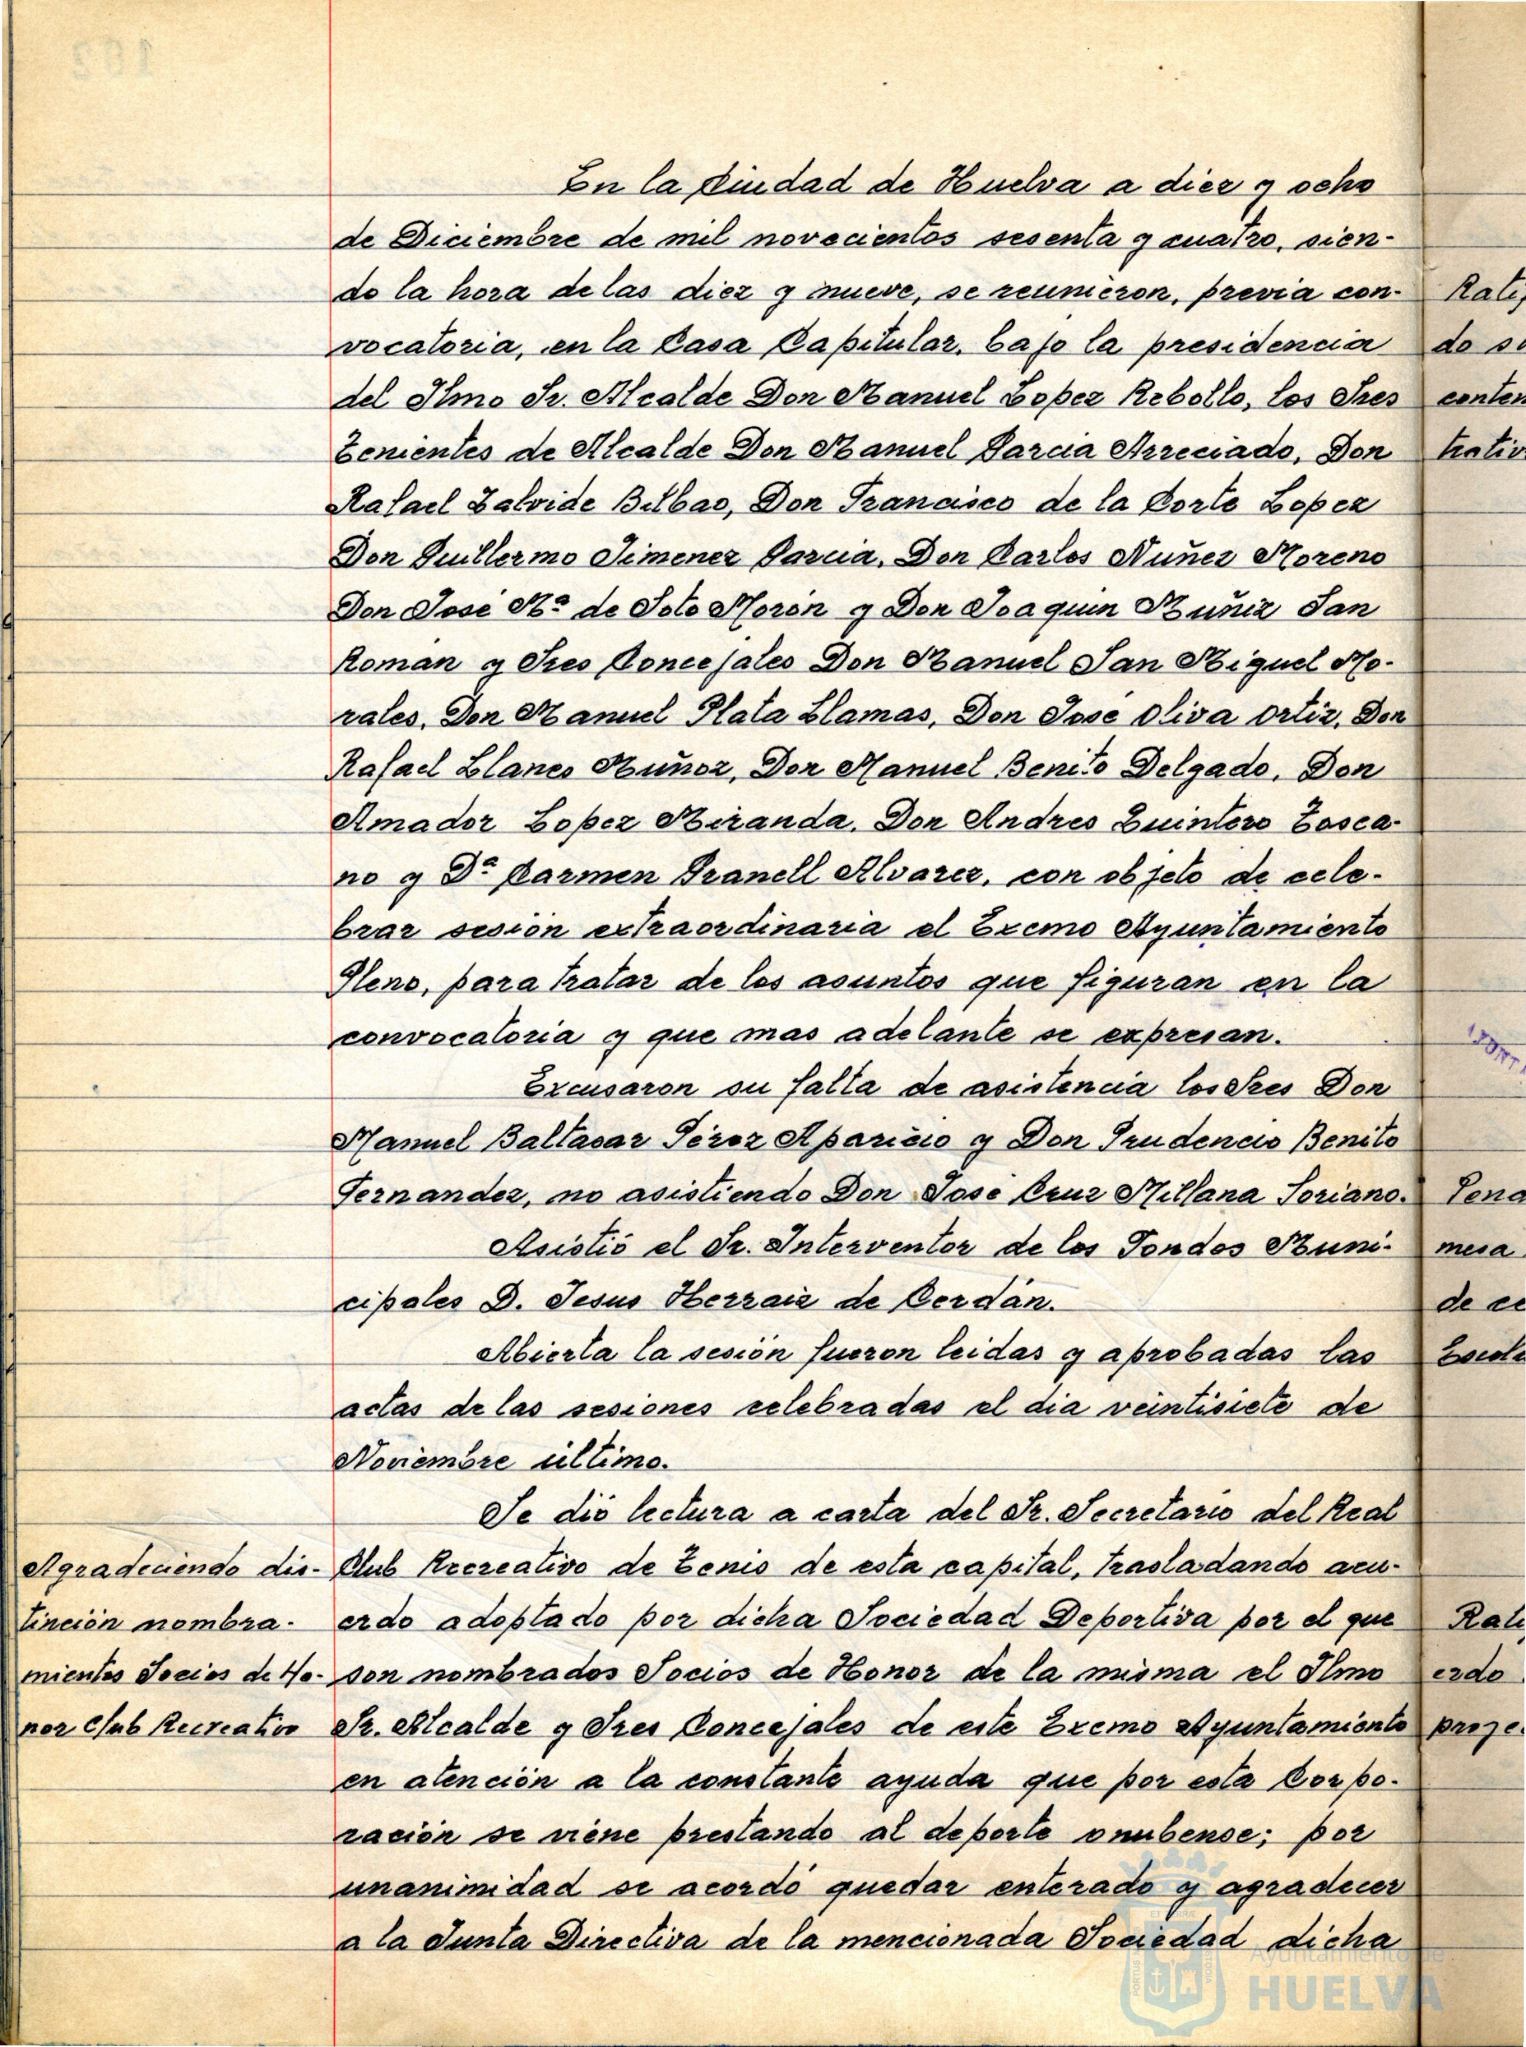 En la Ciudad de Huelva a diez y ocho
de Diciembre de mil novecientos sesenta y cuatro, sien-
do la hora de las diez y nueve, se reunieron, previa con-
vocatoria, en la Casa Capitular, bajo la presidencia
del Ilmo Sr. Alcalde Don Manuel Lopez Rebollo, los Sres
Tenientes de Alcalde Don Manuel Garcia Arreciado, Don
Rafael Zalvide Bilbao, Don Francisco de la Corte Lopez
Don Guillermo Jimenez Garcia, Don Carlos Nuñez Moreno
Don José Mª de Soto Morón y Don Joaquin Muñiz San
Roman y Sres Concejales Don Manuel San Miguel Mo-
rales, Don Manuel Plata Llamas, Don José Oliva Ortiz, Don
Rafael Llanes Muñoz, Don Manuel Benito Delgado, Don
Amador Lopez Miranda, Don Andres Quintero Tosca-
no y Dª Carmen Granell Alvarez, con objeto de cele-
brar sesión extraordinaria el Excmo Ayuntamiento
Pleno, para tratar de los asuntos que figuran en la
convocatoria y que mas adelante se expresan.
Excusaron su falta de asistencia los Sres Don
Manuel Baltasar Pérez Aparicio y Don Prudencio Benito
Fernandez, no asistiendo Don José Cruz Millana Soriano.
Asistió el Sr. Interventor de los Fondos Muni-
cipales D. Jesus Herraiz de Cerdán.
Abierta la sesión fueron leidas y aprobadas las
actas de las sesiones celebradas el dia veintisiete de
Noviembre último.
Se dió lectura a carta del Sr. Secretario del Real
Club Recreativo de Tenis de esta capital, trasladando acu-
erdo adoptado por dicha Sociedad Deportiva por el que
son nombrados Socios de Honor de la misma el Ilmo
Sr. Alcalde y Sres Concejales de este Excmo Ayuntamiento
en atención a la constante ayuda que por esta Corpo-
ración se viene prestando al deporte onubense; por
unanimidad se acordó quedar enterado y agradecer
a la Junta Directiva de la mencionada Sociedad dicha
Agradeciendo dis-
tinción nombra-
mientos Socios de Ho-
nor Club Recreativo
do
mesa
de
erdo
Ayuntamiento de
HUELVA